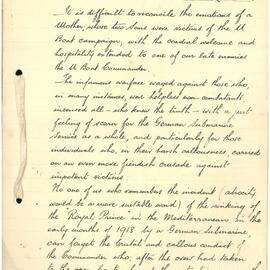 It is difficult to reconcile the emotions of a
Mother whose two Sons were victims of the U
Boat campaign, with the cordial welcome and
hospitality extended to one of our late enemies
the U Boat Commander.
The infamous warfare waged against those who,
in many instances, was helpless non combatants,
incensed all - who knew the truth - with a just
feeling of scorn for the German Submarine
Service as a whole, and particularly for those
individuals who, in their harsh callousness, carried
on an even more fiendish crusade against
impotent victims
No one of us who remembers the incident (atrocity
would be a more suitable word) of the sinking of
the 'Royal Prince' in the Mediterranean in the
early months of 1918, by a German Submarine,
can forget the brutal and callous conduct of
the Commander who, after the crew had taken
to the